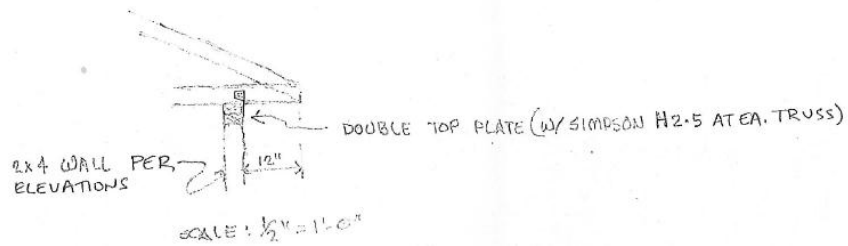 DOUBLE TOP PLATE (W/ SIMPSON H2.5 AT EA. TRUSS)
2x4 WALL PER
ELEVATIONS
12"
SCALE: 1/2" = 1'-0"